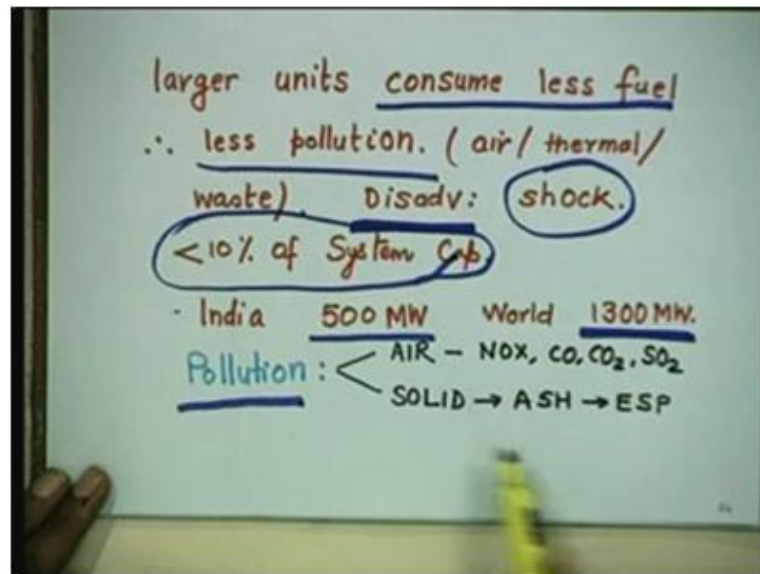 larger units consume less fuel
∴ less pollution. (air/ thermal/
waste). Disadv: shock.
<10% of System Cap.
· India 500 MW World 1300 MW.
Pollution : < AIR – NOX, CO, CO₂, SO₂
SOLID → ASH → ESP